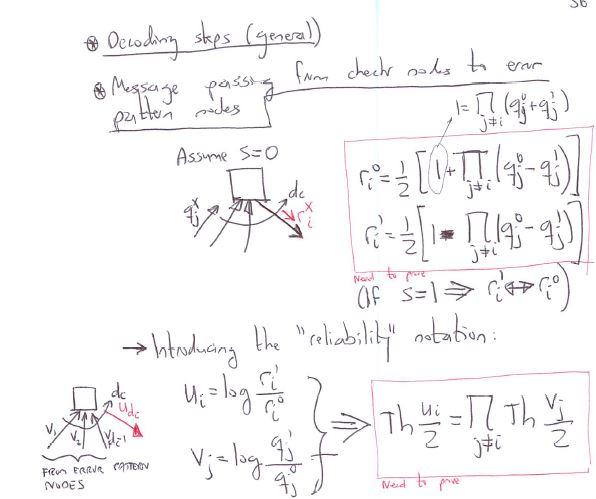 36
⊛ Decoding steps (general)
⊛ Message passing from check nodes to error
pattern nodes
1=∏_{j≠i}(q_j^0+q_j^1)
Assume S=0
q_j^x
dc
r_i^x
r_i^0=1/2[1+∏_{j≠i}(q_j^0-q_j^1)]
r_i^1=1/2[1-∏_{j≠i}(q_j^0-q_j^1)]
Need to prove
(If S=1⇒r_i^1↔r_i^0)
→ Introducing the "reliability" notation:
U_i=log r_i^1/r_i^0
V_j=log q_j^1/q_j^0
⇒ Th u_i/2=∏_{j≠i} Th v_j/2
Need to prove
dc
U_dc
V_1 V_2
FROM ERROR PATTERN
NODES